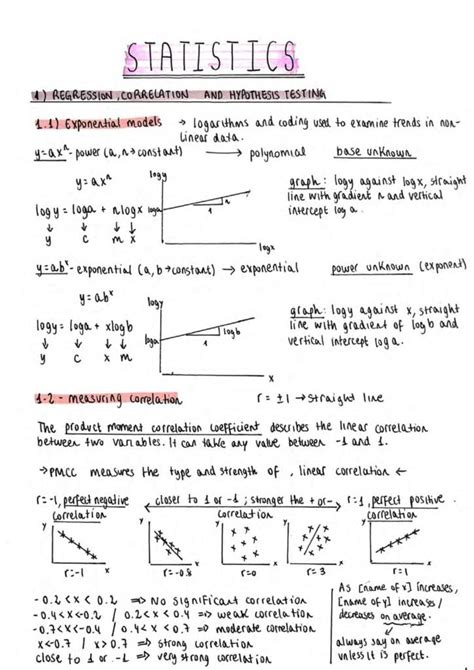 STATISTICS
1) REGRESSION, CORRELATION AND HYPOTHESIS TESTING
1.1) Exponential models → logarithms and coding used to examine trends in non-
linear data.
y=axⁿ- power (a, n→constant) → polynomial base unknown
y=axⁿ
logy = loga + nlogx
↓ ↓ ↓ ↓
y c m x
logy
loga
1
n
logx
graph: logy against logx, straight
line with gradient n and vertical
intercept log a.
y=abˣ- exponential (a, b→constant) → exponential power unknown (exponent)
y=abˣ
logy= loga + xlogb
↓ ↓ ↓ ↓
y c x m
logy
loga
1
logb
x
graph: logy against x, straight
line with gradient of log b and
vertical intercept log a.
1-2 - measuring correlation r = ±1 → straight line
The product moment correlation coefficient describes the linear correlation
between two variables. It can take any value between -1 and 1.
→PMCC measures the type and strength of , linear correlation ←
r=-1, perfect negative correlation
closer to 1 or -1 ; stronger the + or - correlation
r=1, perfect positive correlation
y x y x y x y x y x
r=-1 r=-0.8 r=0 r=3 r=1
-0.2<x<0.2 => No significant correlation
-0.4<x<-0.2 / 0.2<x<0.4 => weak correlation
-0.7<x<-0.4 / 0.4<x<0.7 => moderate correlation
x<-0.7 / x>0.7 => strong correlation
close to 1 or -1 => very strong correlation
As [name of x] increases,
[name of y] increases/
decreases on average.
always say on average
unless it is perfect.